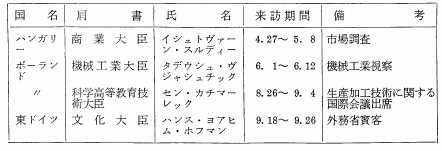 国名 肩書 氏名 来訪期間 備考
ハンガリー 商業大臣 イシュトヴァーン・スルディー 4.27～5.8 市場調査
ポーランド 機械工業大臣 タデウシュ・ヴジャシュチック 6.1～6.12 機械工業視察
〃 科学高等教育技術大臣 セン・カチマーレック 8.26～9.4 生産加工技術に関する国際会議出席
東ドイツ 文化大臣 ハンス・ヨアヒム・ホフマン 9.18～9.26 外務省賓客